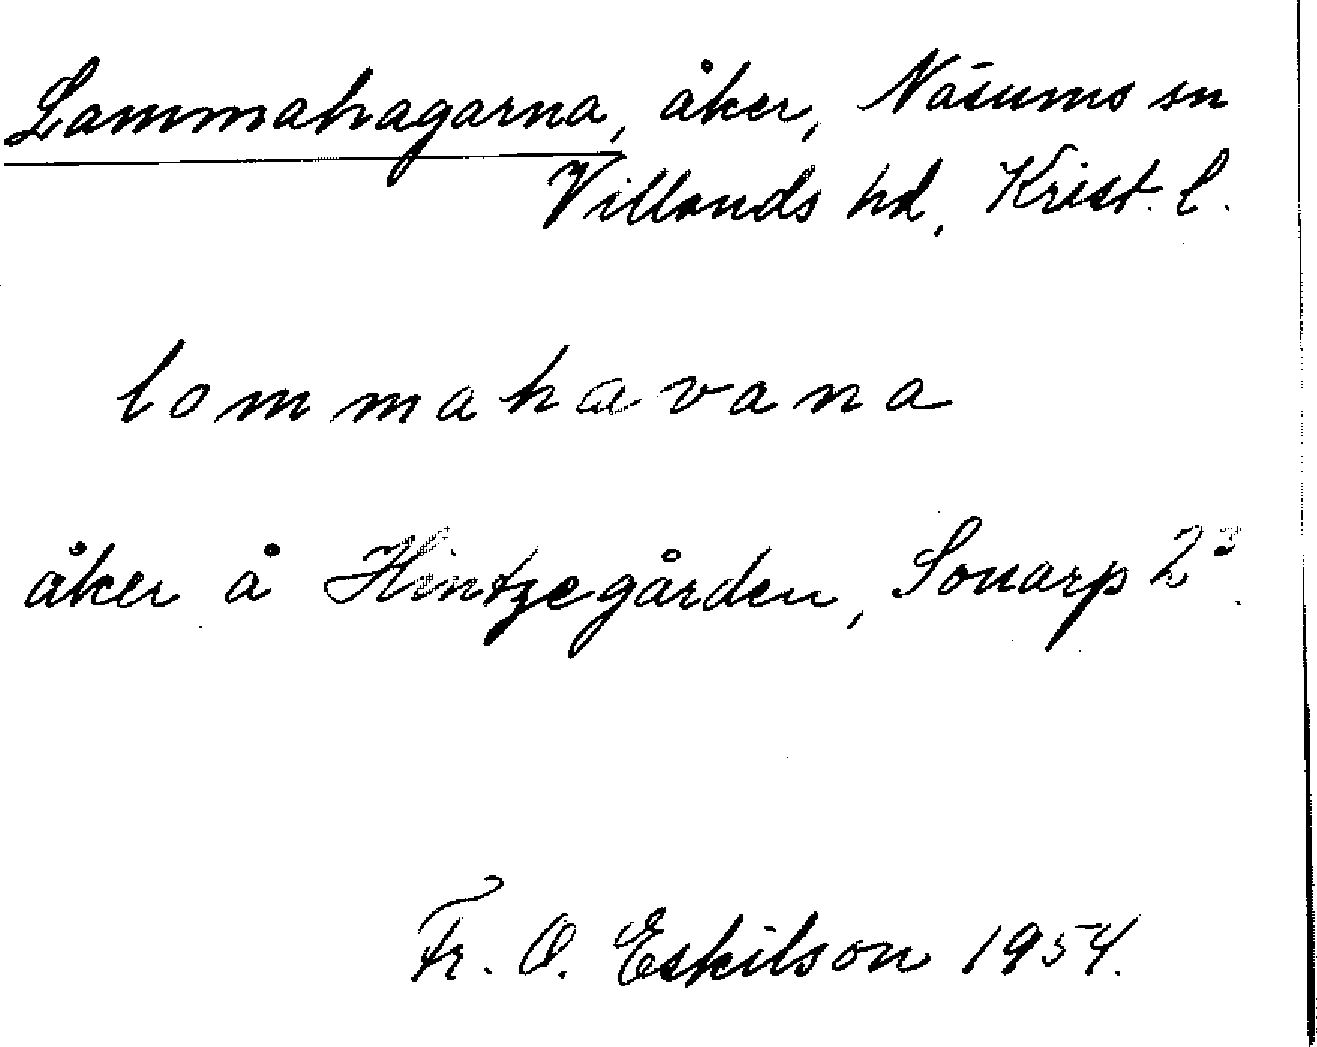 Lammahagarna, åker, Näsums sn
Villands hd, Krist. l.
lommahavana
åker å Hintzegården, Sonarp 2³.
Fr. O. Eskilson 1954.